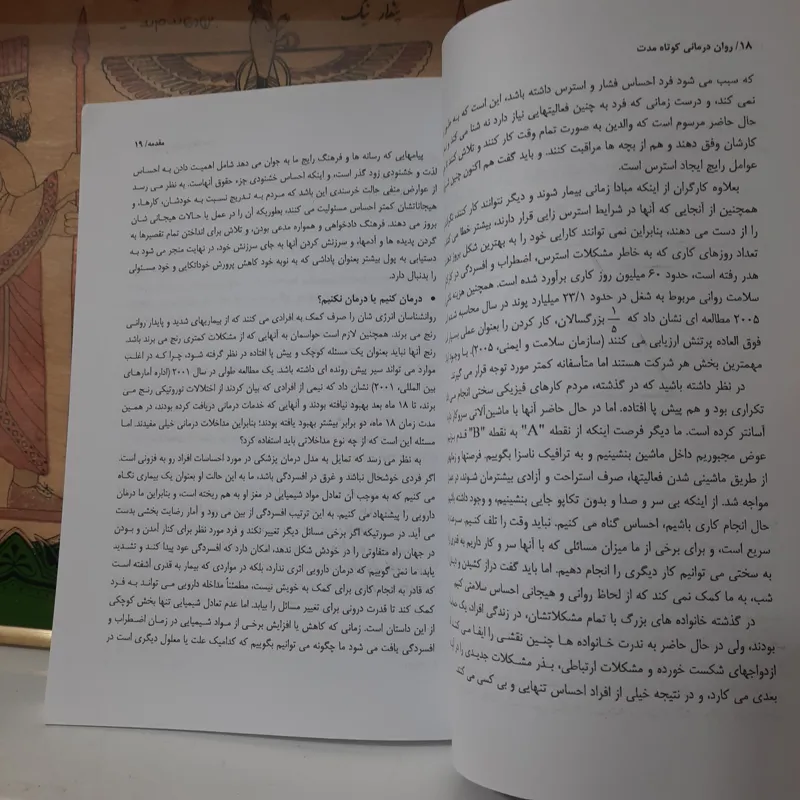 ۱۸/ روان درمانی کوتاه مدت
که سبب می شود فرد احساس فشار و استرس داشته باشد، این است که به
نمی کند، و درست زمانی که فرد به چنین فعالیتهایی نیاز دارد نه شنا می کند و
حال حاضر مرسوم است که والدین به صورت تمام وقت کار کنند و تلاش کنند
کارشان وفق دهند و هم از بچه ها مراقبت کنند. و باید گفت هم اکنون چنین
عوامل رایج ایجاد استرس است.
بعلاوه کارگران از اینکه مبادا زمانی بیمار شوند و دیگر نتوانند کار کنند،
همچنین از آنجایی که آنها در شرایط استرس زایی قرار دارند، بیشتر خطا می کنند
را از دست می دهند، بنابراین نمی توانند کارایی خود را به بهترین شکل بروز
تعداد روزهای کاری که به خاطر مشکلات استرس، اضطراب و افسردگی در
هدر رفته است، حدود ۶۰ میلیون روز کاری برآورد شده است. همچنین هزینه
سلامت روانی مربوط به شغل در حدود ۲۳/۱ میلیارد پوند در سال محاسبه شده
۲۰۰۵ مطالعه ای نشان داد که ۱/۵ بزرگسالان، کار کردن را بعنوان عملی بسیار
فوق العاده پرتنش ارزیابی می کنند (سازمان سلامت و ایمنی، ۲۰۰۵). با وجود
مهمترین بخش هر شرکت هستند اما متأسفانه کمتر مورد توجه قرار می گیرند.
در نظر داشته باشید که در گذشته، مردم کارهای فیزیکی سختی انجام می
تکراری بود و هم پیش پا افتاده. اما در حال حاضر آنها با ماشین‌آلاتی سروکار
آسانتر کرده است. ما دیگر فرصت اینکه از نقطه "A" به نقطه "B" قدم بزنیم
عوض مجبوریم داخل ماشین بنشینیم و به ترافیک ناسزا بگوییم. فرصتها و
از طریق ماشینی شدن فعالیتها، صرف استراحت و آزادی بیشترمان شوند، در
مواجه شد. از اینکه بی سر و صدا و بدون تکاپو جایی بنشینیم، و وجود داشته باشیم
حال انجام کاری باشیم، احساس گناه می کنیم. نباید وقت را تلف کنیم.
سریع است، و برای برخی از ما میزان مسائلی که با آنها سر و کار داریم به قدری
به سختی می توانیم کار دیگری را انجام دهیم. اما باید گفت دراز کشیدن و
شب، به ما کمک نمی کند که از لحاظ روانی و هیجانی احساس سلامتی کنیم
در گذشته خانواده های بزرگ با تمام مشکلاتشان، در زندگی افراد، یک
بودند، ولی در حال حاضر به ندرت خانواده ها چنین نقشی را ایفا می کنند
ازدواجهای شکست خورده و مشکلات ارتباطی، بذر مشکلات جدیدی را در
بعدی می کارد، و در نتیجه خیلی از افراد احساس تنهایی و بی کسی می کنند
مقدمه/ ۱۹
پیامهایی که رسانه ها و فرهنگ رایج ما به جوان می دهد شامل اهمیت دادن به احساس
لذت و خشنودی زود گذر است، و اینکه احساس خشنودی جزء حقوق آنهاست. به نظر می رسد
از عوارض منفی حالت خرسندی این باشد که مردم به تدریج نسبت به خودشان، کارها، و
هیجاناتشان کمتر احساس مسئولیت می کنند، بطوریکه آن را در عمل یا حالات هیجانی شان
بروز می دهند. فرهنگ دادخواهی و همواره مدعی بودن، و تلاش برای انداختن تمام تقصیرها به
گردن پدیده ها و آدمها، و سرزنش کردن آنها به جای سرزنش خود، در نهایت منجر می شود به
دستیابی به پول بیشتر بعنوان پاداشی که به نوبه خود کاهش پرورش خوداتکایی و خود مسئولی
را بدنبال دارد.
• درمان کنیم یا درمان نکنیم؟
روانشناسان انرژی شان را صرف کمک به افرادی می کنند که از بیماریهای شدید و پایدار روانی
رنج می برند. همچنین لازم است حواسمان به آنهایی که از مشکلات کمتری رنج می برند باشد.
رنج آنها نباید بعنوان یک مسئله کوچک و پیش پا افتاده در نظر گرفته شود، چرا که در اغلب
موارد می تواند سیر پیش رونده ای داشته باشد. یک مطالعه طولی در سال ۲۰۰۱ (اداره آمارهای
بین المللی، ۲۰۰۱) نشان داد که نیمی از افرادی که بیان کردند از اختلالات نوروتیکی رنج می
برند، تا ۱۸ ماه بعد بهبود نیافته بودند و آنهایی که خدمات درمانی دریافت کرده بودند، در همین
مدت زمان ۱۸ ماه، دو برابر بیشتر بهبود یافته بودند؛ بنابراین مداخلات درمانی خیلی مفیدند. اما
مسئله این است که از چه نوع مداخلاتی باید استفاده کرد؟
به نظر می رسد که تمایل به مدل درمان پزشکی در مورد احساسات افراد رو به فزونی است.
اگر فردی خوشحال نباشد و غرق در افسردگی باشد، ما به این حالت او بعنوان یک بیماری نگاه
می کنیم که به موجب آن تعادل مواد شیمیایی در مغز او به هم ریخته است، و بنابراین ما درمان
دارویی را پیشنهاد می کنیم. به این ترتیب افسردگی از بین می رود و آمار رضایت بخشی بدست
می آید. در صورتیکه اگر برخی مسائل دیگر تغییر نکند و فرد مورد نظر برای کنار آمدن و بودن
در جهان راه متفاوتی را در خودش شکل ندهد، امکان دارد که افسردگی عود پیدا کند و تشدید
یابد. ما نمی گوییم که درمان دارویی اثری ندارد، بلکه در مواردی که بیمار به قدری آشفته است
که قادر به انجام کاری برای کمک به خویش نیست، مطمئناً مداخله دارویی می تواند به فرد
کمک کند تا قدرت درونی برای تغییر مسائل را بیابد. اما عدم تعادل شیمیایی تنها بخش کوچکی
از این داستان است. زمانی که کاهش یا افزایش برخی از مواد شیمیایی در زمان اضطراب و
افسردگی یافت می شود ما چگونه می توانیم بگوییم که کدامیک علت یا معلول دیگری است در